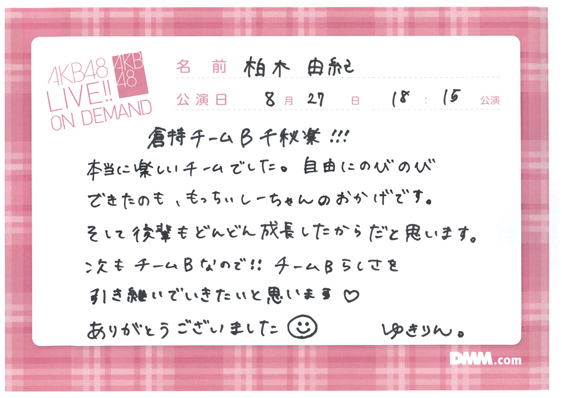 AKB48
LIVE!!
ON DEMAND
AKB
48
名前 柏木 由紀
公演日 8月27日 18:15 公演
倉持チームB千秋楽!!!
本当に楽しいチームでした。自由にのびのび
できたのも、もっちぃしーちゃんのおかげです。
そして後輩もどんどん成長したからだと思います。
次もチームBなので!! チームBらしさを
引き継いでいきたいと思います♡
ありがとうございました☺ ゆきりん。
DMM.com